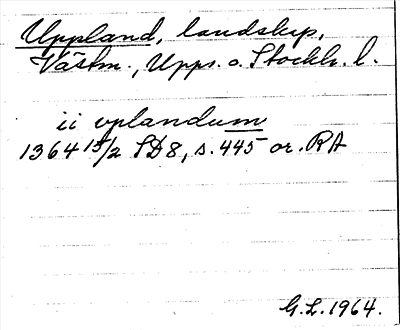 Uppland, landskap,
Västm., Upps. o. Stockh. l.
ii vplandum
1364 15/2 SD8, s. 445 or. RA
G.L. 1964.